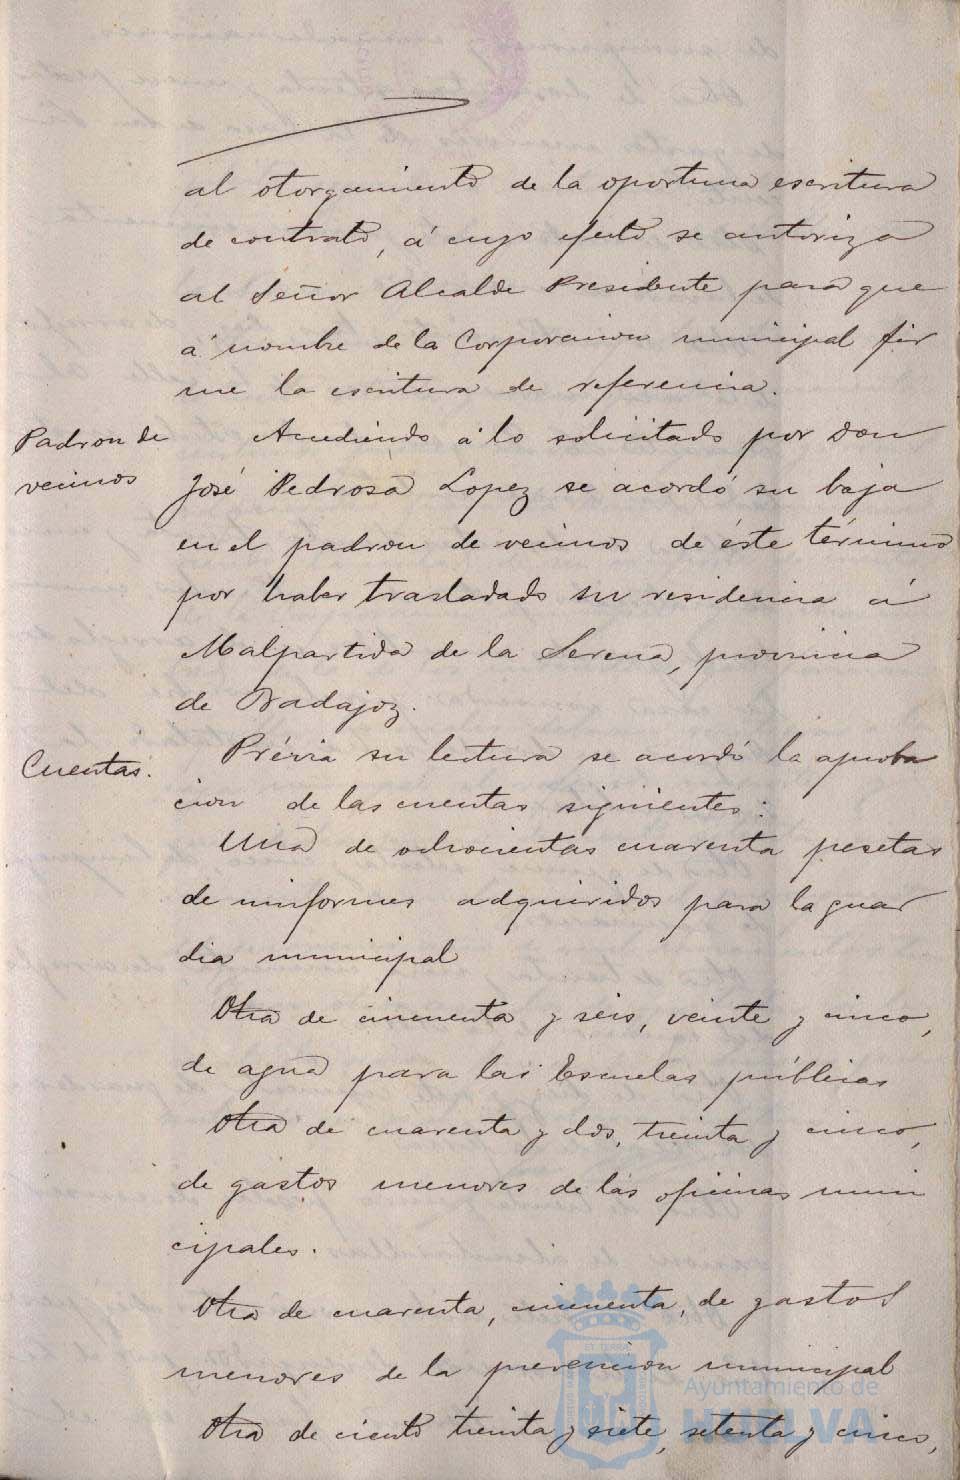 al otorgamiento de la oportuna escritura
de contrato, á cuyo efecto se autoriza
al Señor Alcalde Presidente para que
á nombre de la Corporacion municipal fir
me la escritura de referencia.
Padron de
vecinos
Accediendo á lo solicitado por Don
José Pedrosa Lopez se acordó su baja
en el padron de vecinos de éste término
por haber trasladado su residencia á
Malpartida de la Serena, provincia
de Badajoz.
Cuentas.
Prévia su lectura se acordó la aproba
cion de las cuentas siguientes:
Una de ochocientas cuarenta pesetas
de uniformes adquiridos para la guar
dia municipal
Otra de cincuenta y seis, veinte y cinco,
de agua para las Escuelas públicas
Otra de cuarenta y dos, treinta y cinco,
de gastos menores de las oficinas muni
cipales.
Otra de cuarenta, cincuenta, de gastos
menores de la prevencion municipal
Otra de ciento treinta y siete, setenta y cinco,
Ayuntamiento de
HUELVA